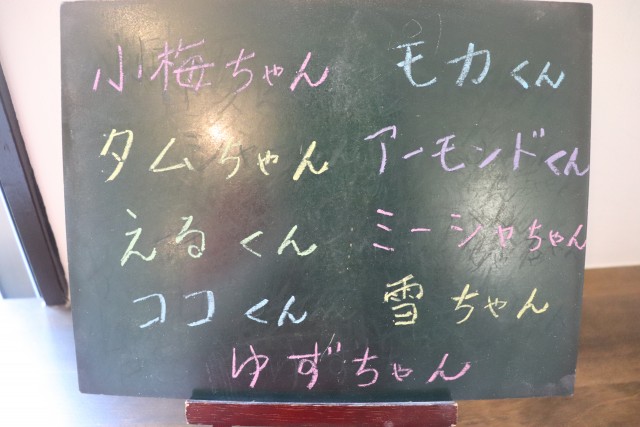 小梅ちゃん モカくん
タムちゃん アーモンドくん
えるくん ミーシャちゃん
ココくん 雪ちゃん
ゆずちゃん